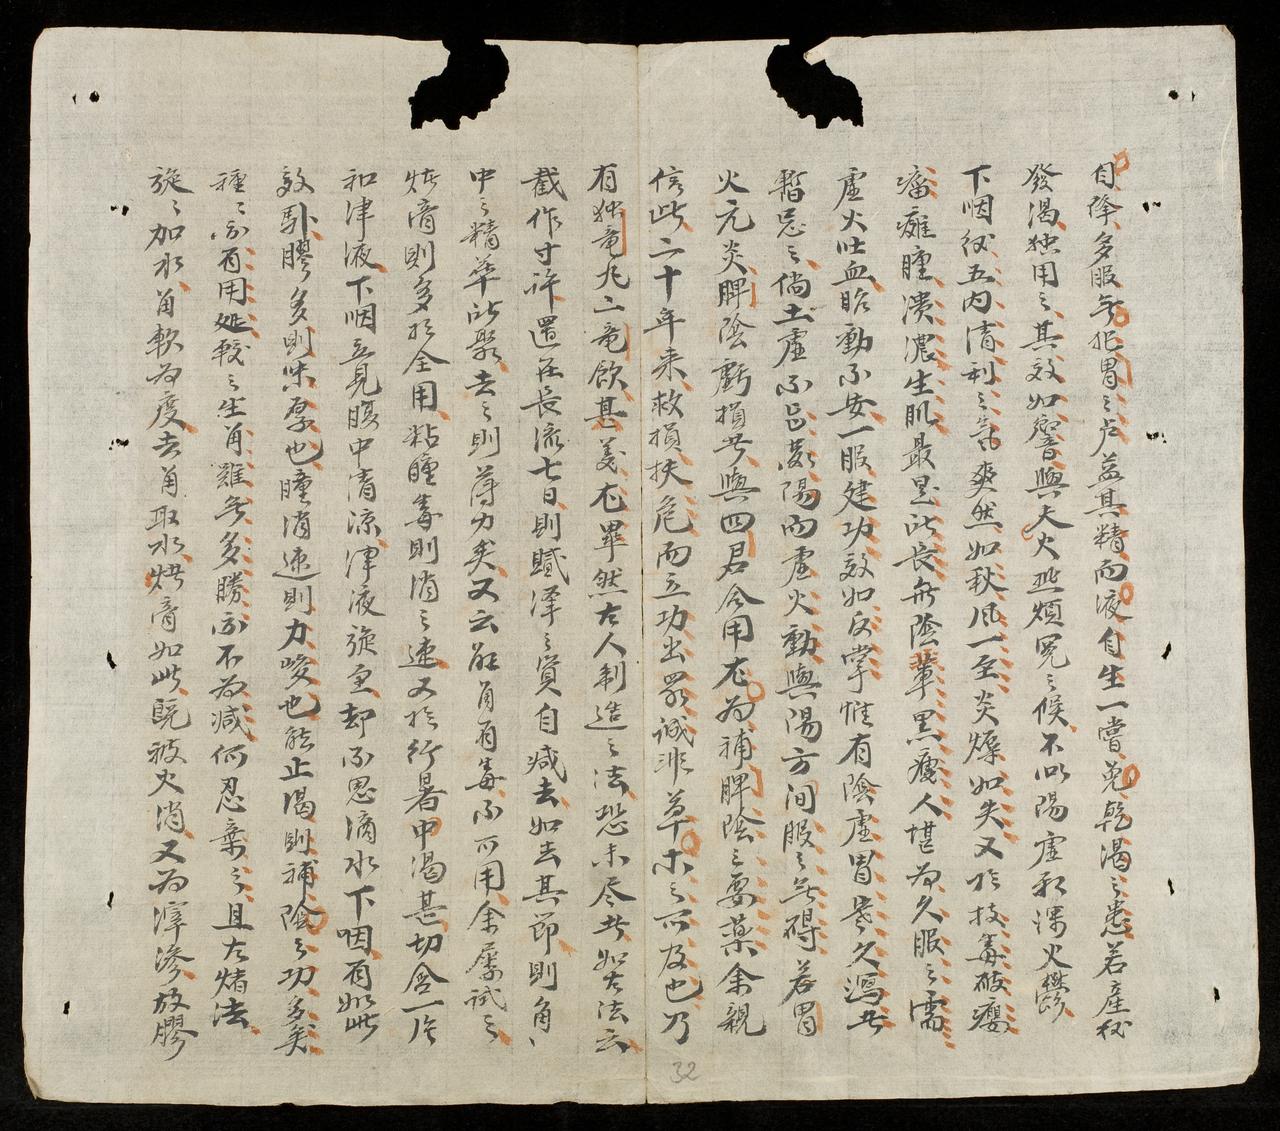 自降多服無犯胃之虞益其精而液自生一嘗免乾渴之患若産後
發渴独用之其效如響與夫火逆煩冤之候不以陽虛邪深火鬱
下咽後五内清利之氣爽然如秋風一至炎爍如失又於技毒破癭
瘤癰腫潰濃生肌最是此長無陰輩黑瘦人堪為久服之需
虛火吐血胎動不安一服建功效如反掌惟有陰虛胃寒久瀉者
暫忌之倘土虛不呂蒸陽而虛火動與陽方间服之無碍若胃
火元炎脾陰虧損者與四君合用尤為補脾陰之要藥余親
信此二十年来救損扶危而立功出眾誠非草木之所及也乃
有独竜丸二竜飲甚義尤單然古人制造之法恐未尽者如古法云
截作寸許置在長流七日則膩澤之質自减去如去其節則角丶
中之精華所聚去之則薄力矣又云嚴角有毒不可用余屢試之
炼膏則多於全用粘腫毒則消之速又於行暑中渴甚切含一片
和津液下咽立見腹中清凉津液旋重却不思滴水下咽有如此
效馭膠多則味厚也腫消速則力峻也能止渴則補陰之功多矣
種之宗有用処較之生角雖無多勝亦不為减何忍棄之且古煮法
旋之加水角軟為度去角取水烘膏如此既被火消又為滓滲故膠
32